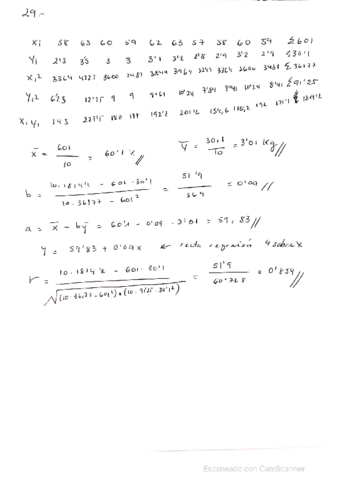 29.-
xi 58 65 60 59 62 63 57 58 60 59 Σ601
yi 2'5 3'5 3 3 3'1 3'2 2'8 2'9 3'2 2'9 Σ30'1
xi² 3364 4225 3600 3481 3844 3969 3249 3364 3600 3481 Σ36177
yi² 6'25 12'25 9 9 9'61 10'24 7'84 8'41 10'24 8'41 Σ91'25
xi yi 145 227'5 180 177 192'2 201'6 159,6 168,2 192 171'1 Σ1814'2
x̄ = 601 / 10 = 60'1 ȳ = 30,1 / 10 = 3'01 Kg
b = 10·1814'2 - 601·30'1 / 10·36177 - 601² = 51'9 / 569 = 0'09
a = x̄ - bȳ = 60'1 - 0'09 · 3'01 = 59,83
y = 59'83 + 0'09x ← recta regresión y sobre x
r = 10·1814'2 - 601·30'1 / √(10·36177-601²)·(10·91'25-30'1²) = 51'9 / 60'768 = 0'854
Escaneado con CamScanner